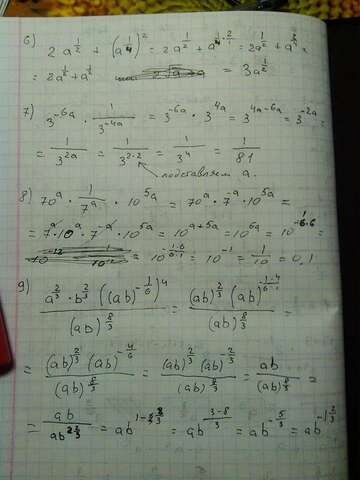 6) 2a^{1/2} + (a^{1/4})^2 = 2a^{1/2} + a^{1/4 · 2} = 2a^{1/2} + a^{2/4} =
= 2a^{1/2} + a^{1/2} = 3a^{1/2}
7) 3^{-6a} · 1/3^{-4a} = 3^{-6a} · 3^{4a} = 3^{4a-6a} = 3^{-2a} =
= 1/3^{2a} = 1/3^{2·2} = 1/3^4 = 1/81
подставляем a.
8) 70^a · 1/7^a · 10^{5a} = 70^a · 7^{-a} · 10^{5a} =
= 7^a · 10^a · 7^{-a} · 10^{5a} = 10^{a+5a} = 10^{6a} = 10^{-1/6·6} =
= 10^{-1·6/6·1} = 10^{-1} = 1/10 = 0,1
9) a^{2/3} · b^{2/3} ((ab)^{-1/6})^4 / (ab)^{8/3} = (ab)^{2/3} (ab)^{-1·4/6·1} / (ab)^{8/3} =
= (ab)^{2/3} (ab)^{-4/6} / (ab)^{8/3} = (ab)^{2/3} (ab)^{-2/3} / (ab)^{8/3} = ab / (ab)^{8/3} =
= ab / ab^{2 2/3} = ab^{1-8/3} = ab^{3-8/3} = ab^{-5/3} = ab^{-1 2/3}